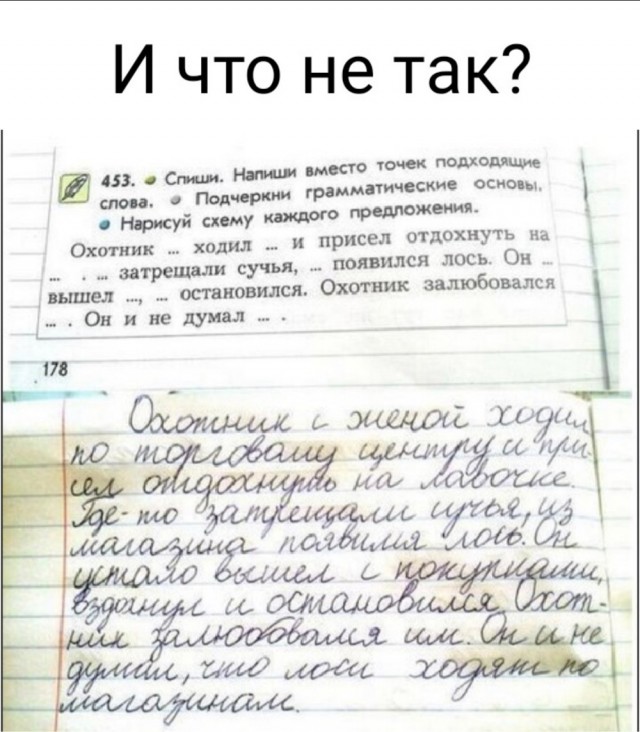 И что не так?
453. Спиши. Напиши вместо точек подходящие
слова. Подчеркни грамматические основы.
Нарисуй схему каждого предложения.
Охотник ... ходил ... и присел отдохнуть на
... . ... затрещали сучья, ... появился лось. Он ...
вышел ..., ... остановился. Охотник залюбовался
... . Он и не думал ... .
178
Охотник с женой ходил
по торговому центру и при-
сел отдохнуть на лавочке.
Где-то затрещали сучья, из
магазина появился лось. Он
устало вышел с покупками,
вздохнул и остановился. Охот-
ник залюбовался им. Он и не
думал, что лоси ходят по
магазинам.